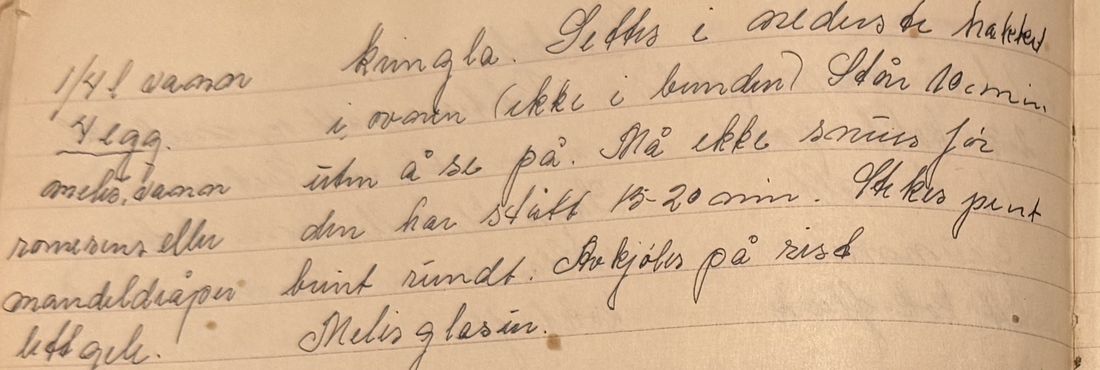 1/4 l vann kringla. Settes i nederste hakket
4 egg. i ovnen (ikke i bunden) Står 10 min.
melis, vann uten å se på. Må ikke snues før
romesens eller den har stått 15-20 min. Stekes pent
mandeldråper brunt rundt. Avkjøles på rist
lett gele. Melis glasur.